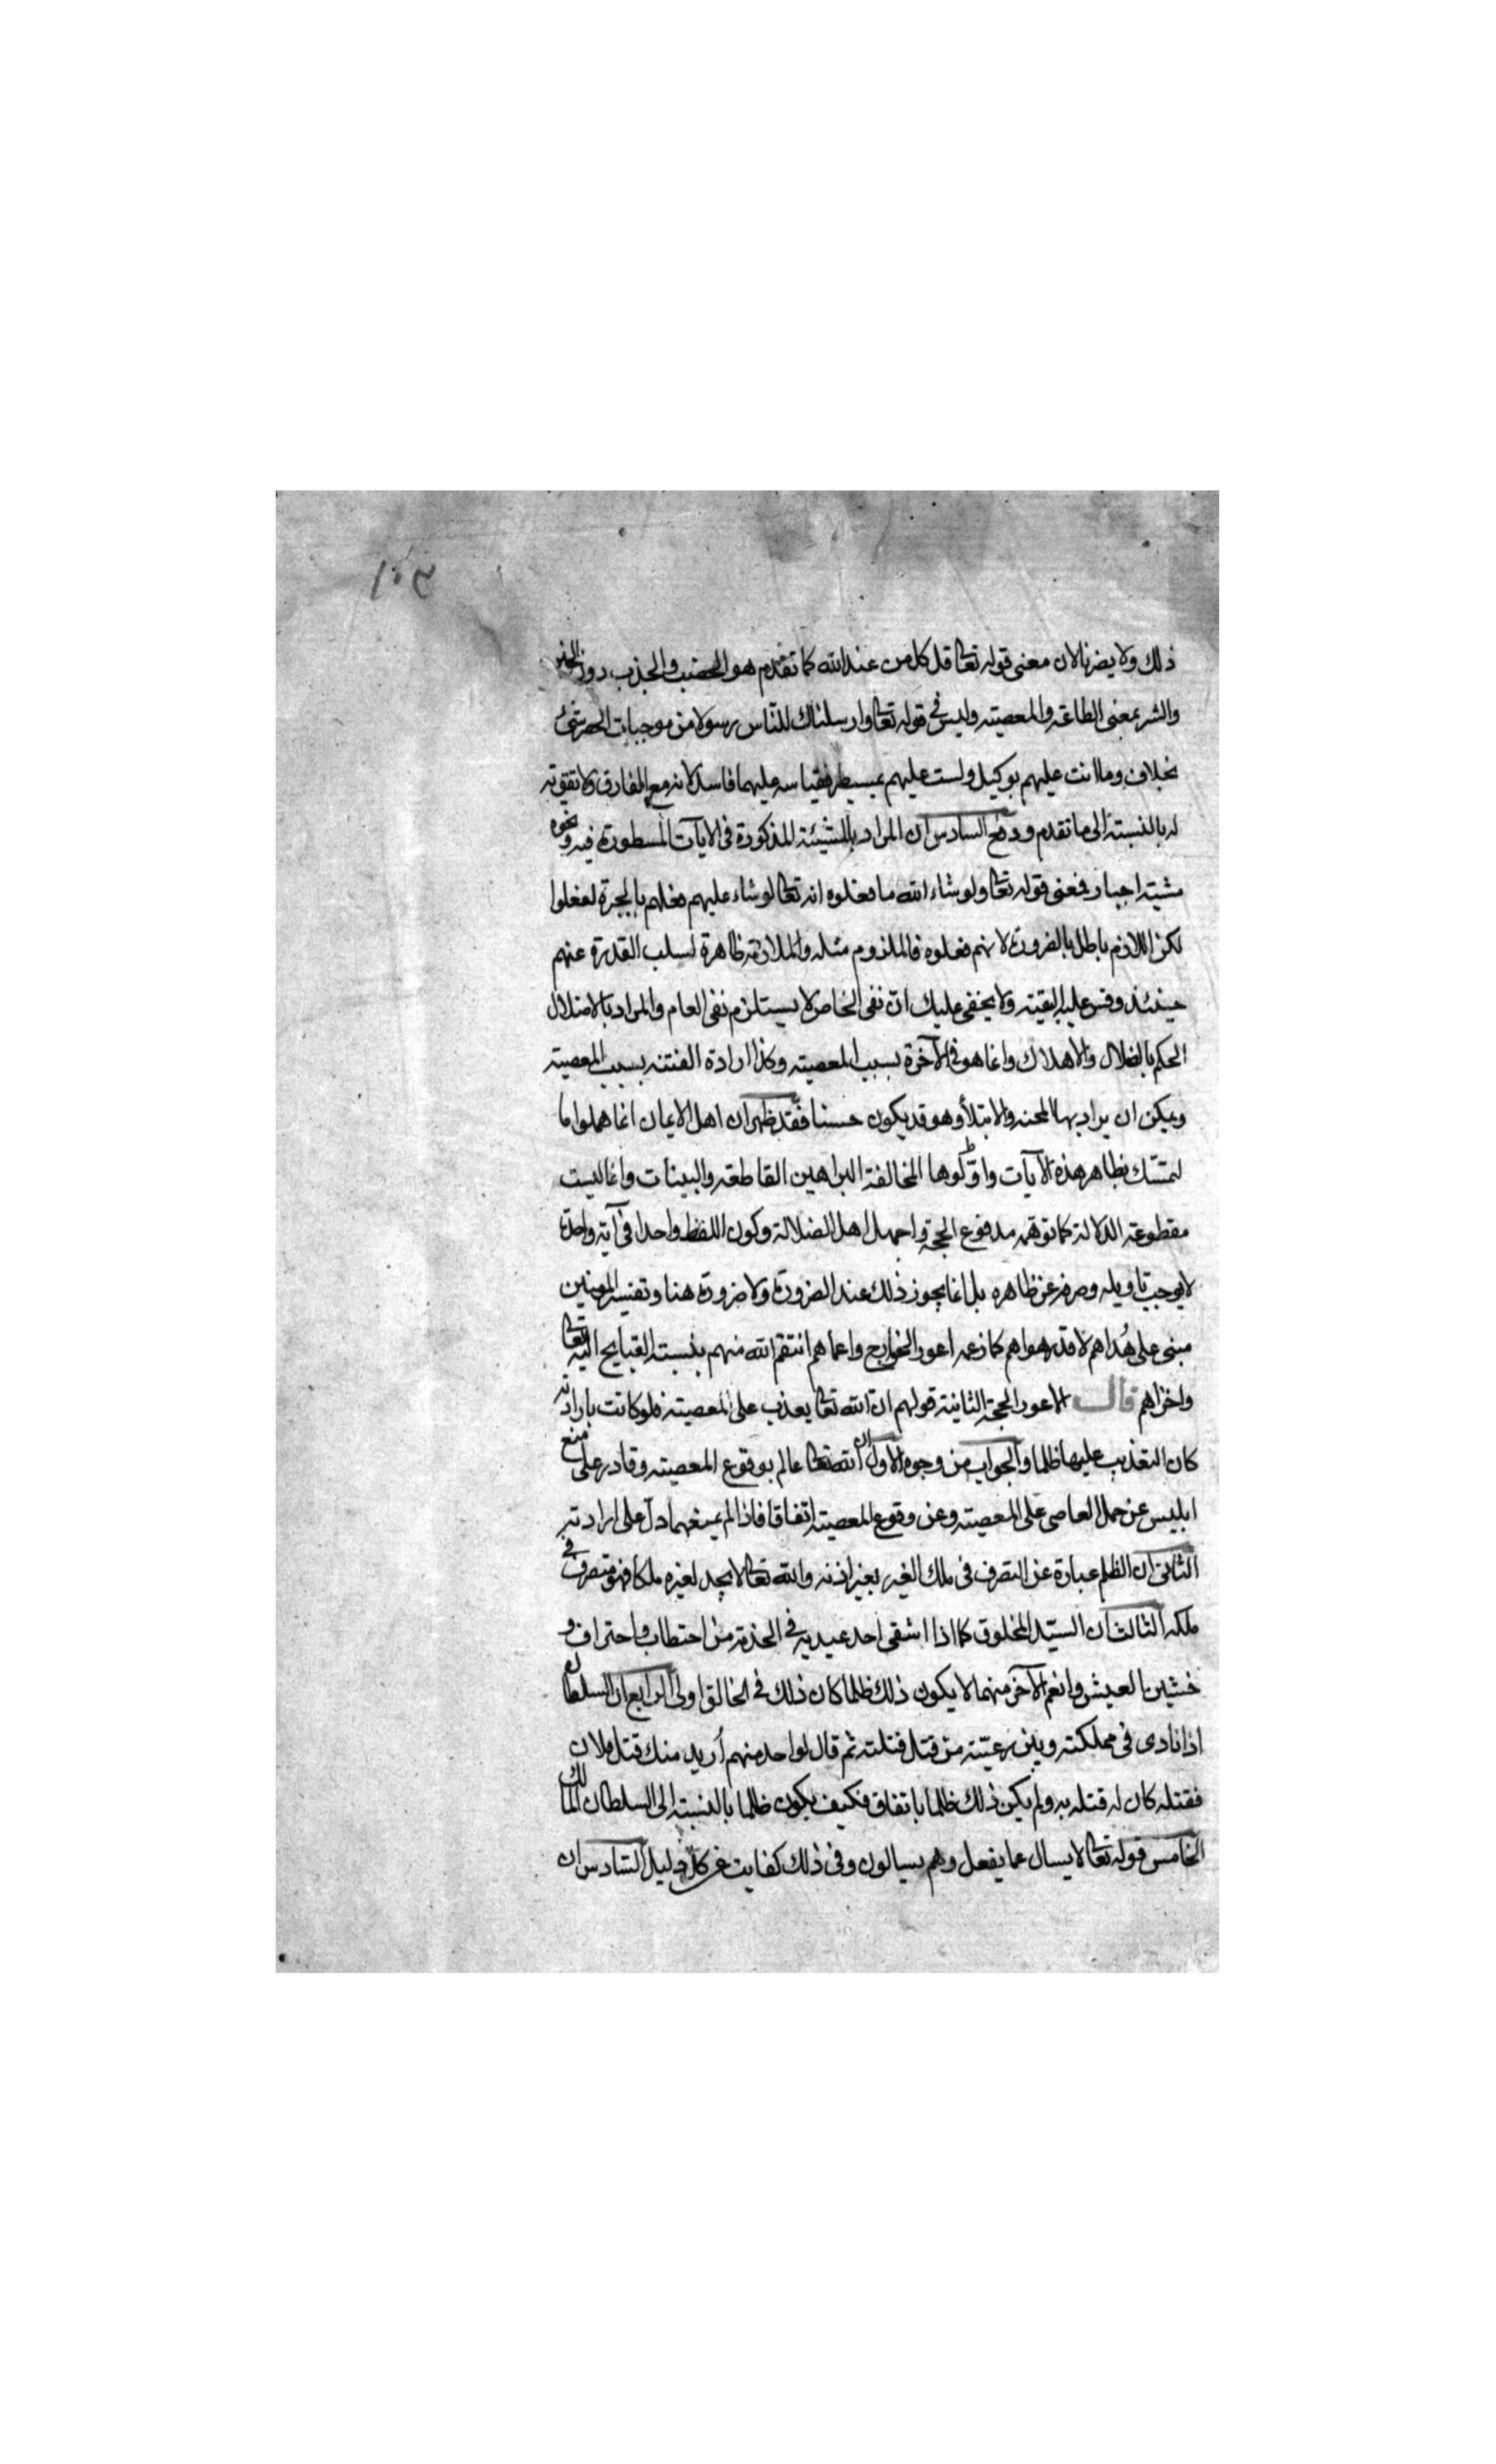 ١٠٣
ذلك ولا يضرنا لان معنى قوله تعالى قل كل من عند الله كما تقدم هو الخصب والجذب دون الخير
والشر بمعنى الطاعة والمعصية وليس في قوله تعالى وارسلناك للناس رسولا من موجبات الحصر شئ
بخلاف وما انت عليهم بوكيل ولست عليهم بمسيطر فقياسه عليهما فاسد لانه مع الفارق ولا تقوية
له بالنسبة الى ما تقدم ودفع السادس ان المراد بالمشيئة المذكورة في الايات المسطورة فيه ونحوه
مشية اجبار فمعنى قوله تعالى ولو شاء الله ما فعلوه انه تعالى لو شاء عليهم فعلهم بالجبرة لفعلوا
لكن اللازم باطل بالضرورة لانهم فعلوه فالملزوم مثله والملازمة ظاهرة لسلب القدرة عنهم
حينئذ وقس عليه البقية ولا يخفى عليك ان نفى الخاص لا يستلزم نفى العام والمراد بالاضلال
الحكم بالضلال والاهلاك وانما هو في الآخرة بسبب المعصية وكذا ارادة الفتنة بسبب المعصية
ويمكن ان يراد بها المحنة والابتلاء وهو قد يكون حسنا فقد ظهر ان اهل الايمان انما هملوا ما
تمسك بظاهر هذه الآيات واوّلوها المخالفة البراهين القاطعة والبينات وانما ليست
مقطوعة الدلالة كما توهمه مدفوع الحجة واجهل اهل الضلالة وكون اللفظ واحدا في آية واحدة
لا يوجب تاويله وصرفه عن ظاهره بل انما يجوز ذلك عند الضرورة ولا ضرورة هنا وتفسير المؤمنين
مبنى على هُداهم لا قدر هواهم كما زعمه اعور الخوارج واعماهم انتقم الله منهم بنسبة القبايح اليه تعالى
واخزاهم قال الاعور الحجة الثانية قولهم ان الله تعالى يعذب على المعصية فلو كانت بارادته
كان التعذيب عليها ظلما والجواب من وجوه الاول ان الله تعالى عالم بوقوع المعصية وقادر على منع
ابليس عن حمل العاصى على المعصية وعن وقوع المعصية اتفاقا فاذا لم يمنعهما دلّ على ارادته
الثانى ان الظلم عبارة عن التصرف في ملك الغير بغير اذنه والله تعالى لا يجد لغيره ملكا فهو متصرف في
ملكه الثالث ان السيّد المخلوق كما اذا اشقى احد عبديه في الخدمة من احتطاب واحتراف و
خشين العيش وانعم الآخر منهما لا يكون ذلك ظلما كان ذلك في الخالق اولى الرابع ان السلطان
اذا نادى في مملكته وبين رعيّته من قتل قتلته ثم قال لواحد منهم أريد منك قتل فلان
فقتله كان له قتله به ولم يكن ذلك ظلما باتفاق فكيف يكون ظلما بالنسبة الى السلطان المالك
الخامس قوله تعالى لا يسال عما يفعل وهم يسالون وفى ذلك كفاية عن كل دليل السّادس ان